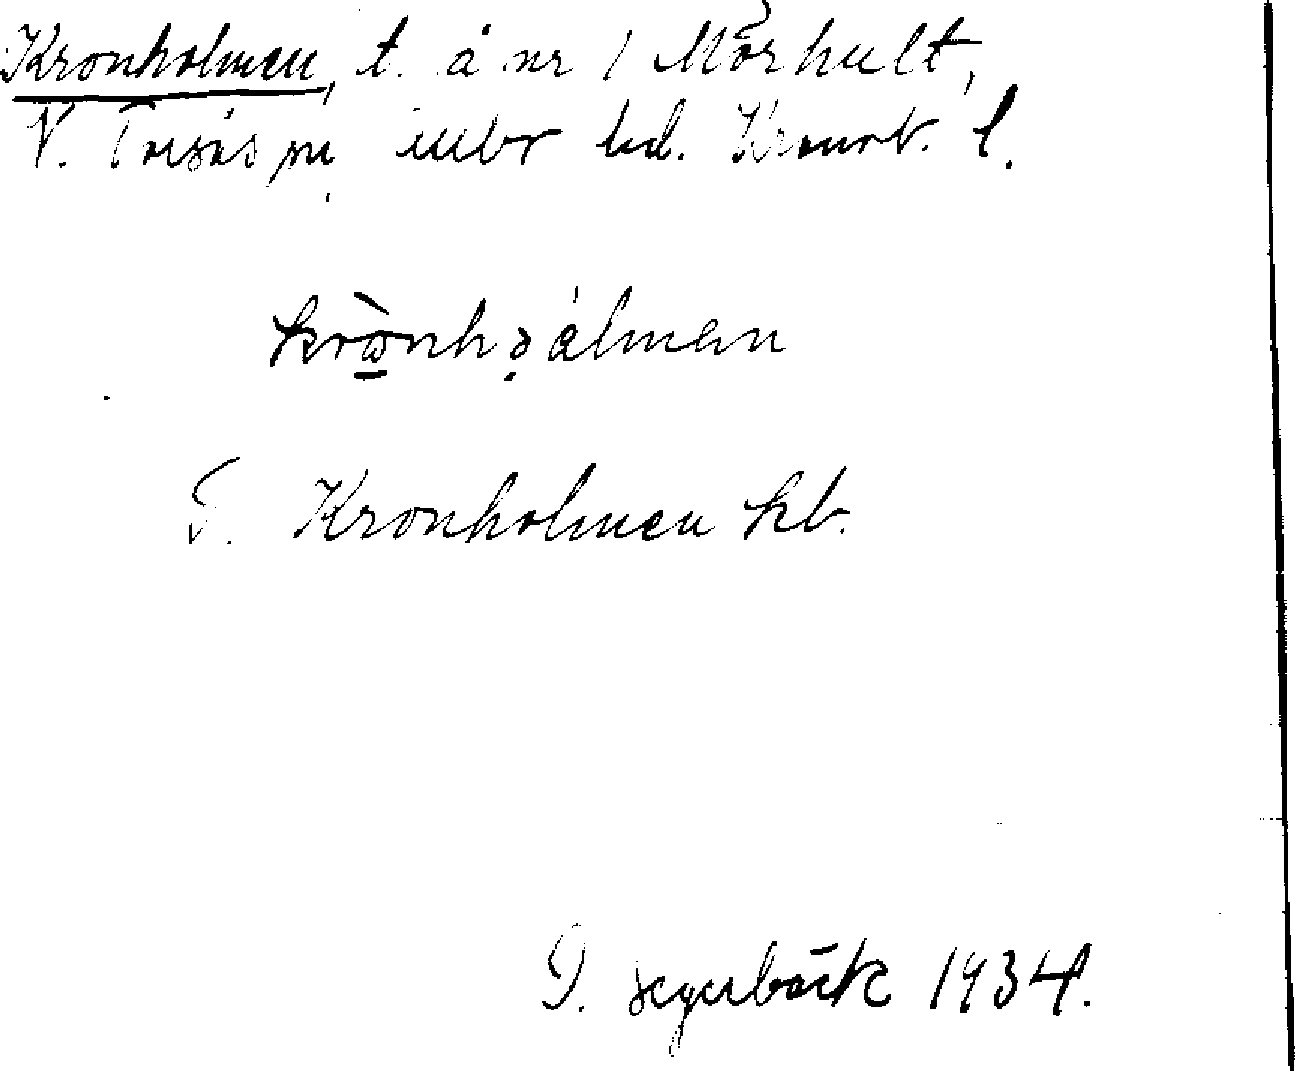 Kronholmen, t. å nr 1 Mörhult,
V. Torsås sn, Medelbr hd. Kronob. l.
krònhɔ̣́lmen
T. Kronholmen kb.
I. Segerbäck 1934.